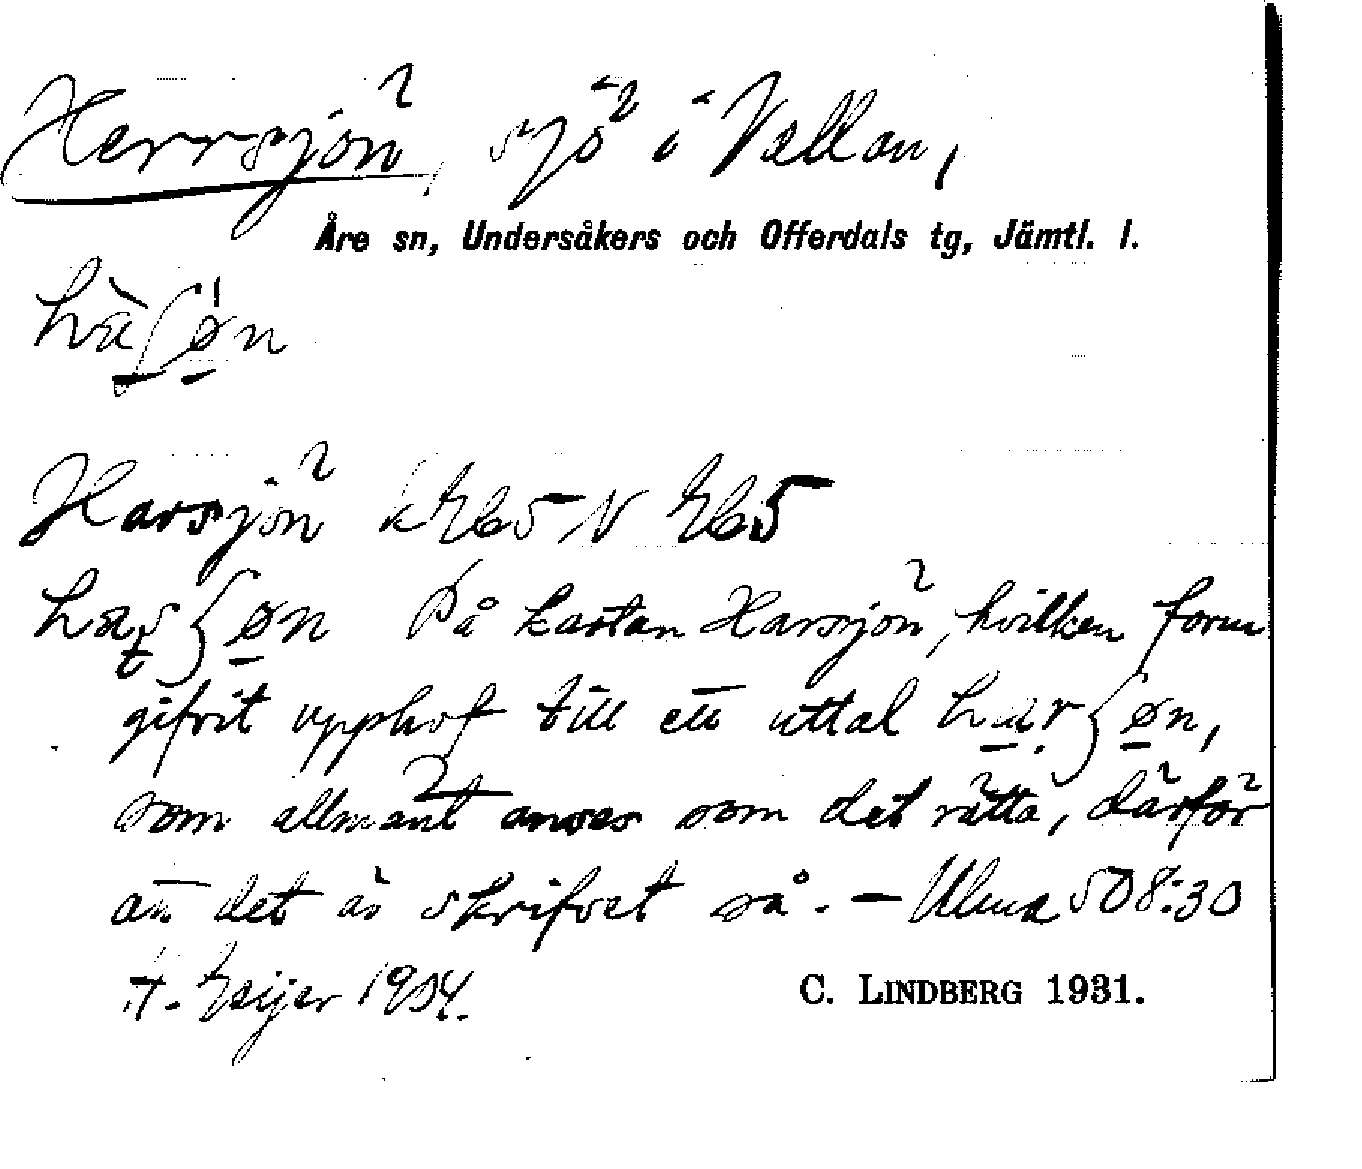 Herrsjön, sjö i Vallan,
Åre sn, Undersåkers och Offerdals tg, Jämtl. l.
hàʃøn
Harrsjön N
haʃøn På kartan Harrsjön, hvilken form
gifvit upphof till ett uttal harʃøn,
som allmänt anses som det rätta, därför
att det är skrifvet så. – Ulma 508:30
H. Geijer 1904.
C. LINDBERG 1931.